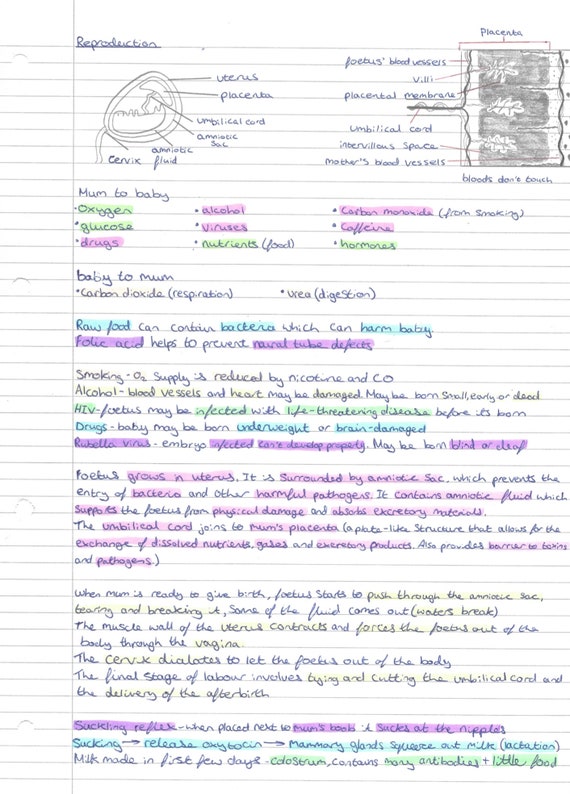 Placenta
Reproduction
foetus' blood vessels
villi
placental membrane
umbilical cord
intervillous space
mother's blood vessels
bloods don't touch
uterus
placenta
umbilical cord
amniotic sac
amniotic fluid
cervix
Mum to baby
• Oxygen • alcohol • Carbon monoxide (from smoking)
• glucose • viruses • Caffeine
• drugs • nutrients (food) • hormones
baby to mum
• Carbon dioxide (respiration) • urea (digestion)
Raw food can contain bacteria which can harm baby.
Folic acid helps to prevent nural tube defects
Smoking - O2 supply is reduced by nicotine and CO
Alcohol - blood vessels and heart may be damaged. May be born small, early or dead
HIV - foetus may be infected with life-threatening disease before its born
Drugs - baby may be born underweight or brain-damaged
Rubella virus - embryo infected can't develop properly. May be born blind or deaf
Foetus grows in uterus. It is surrounded by amniotic sac, which prevents the
entry of bacteria and other harmful pathogens. It contains amniotic fluid which
supports the foetus from physical damage and absorbs excretory materials.
The umbilical cord joins to mum's placenta (a plate-like structure that allows for the
exchange of dissolved nutrients, gases and excretory products. Also provides barrier to toxins
and pathogens.)
When mum is ready to give birth, foetus starts to push through the amniotic sac,
tearing and breaking it, some of the fluid comes out (waters break)
The muscle wall of the uterus contracts and forces the foetus out of the
body through the vagina.
The cervix dialates to let the foetus out of the body
The final stage of labour involves tying and cutting the umbilical cord and
the delivery of the afterbirth
Suckling reflex - when placed next to mum's boob it sucks at the nipples
Sucking → release oxytocin → Mammary glands squeeze out milk (lactation)
Milk made in first few days - colostrum, contains many antibodies + little food